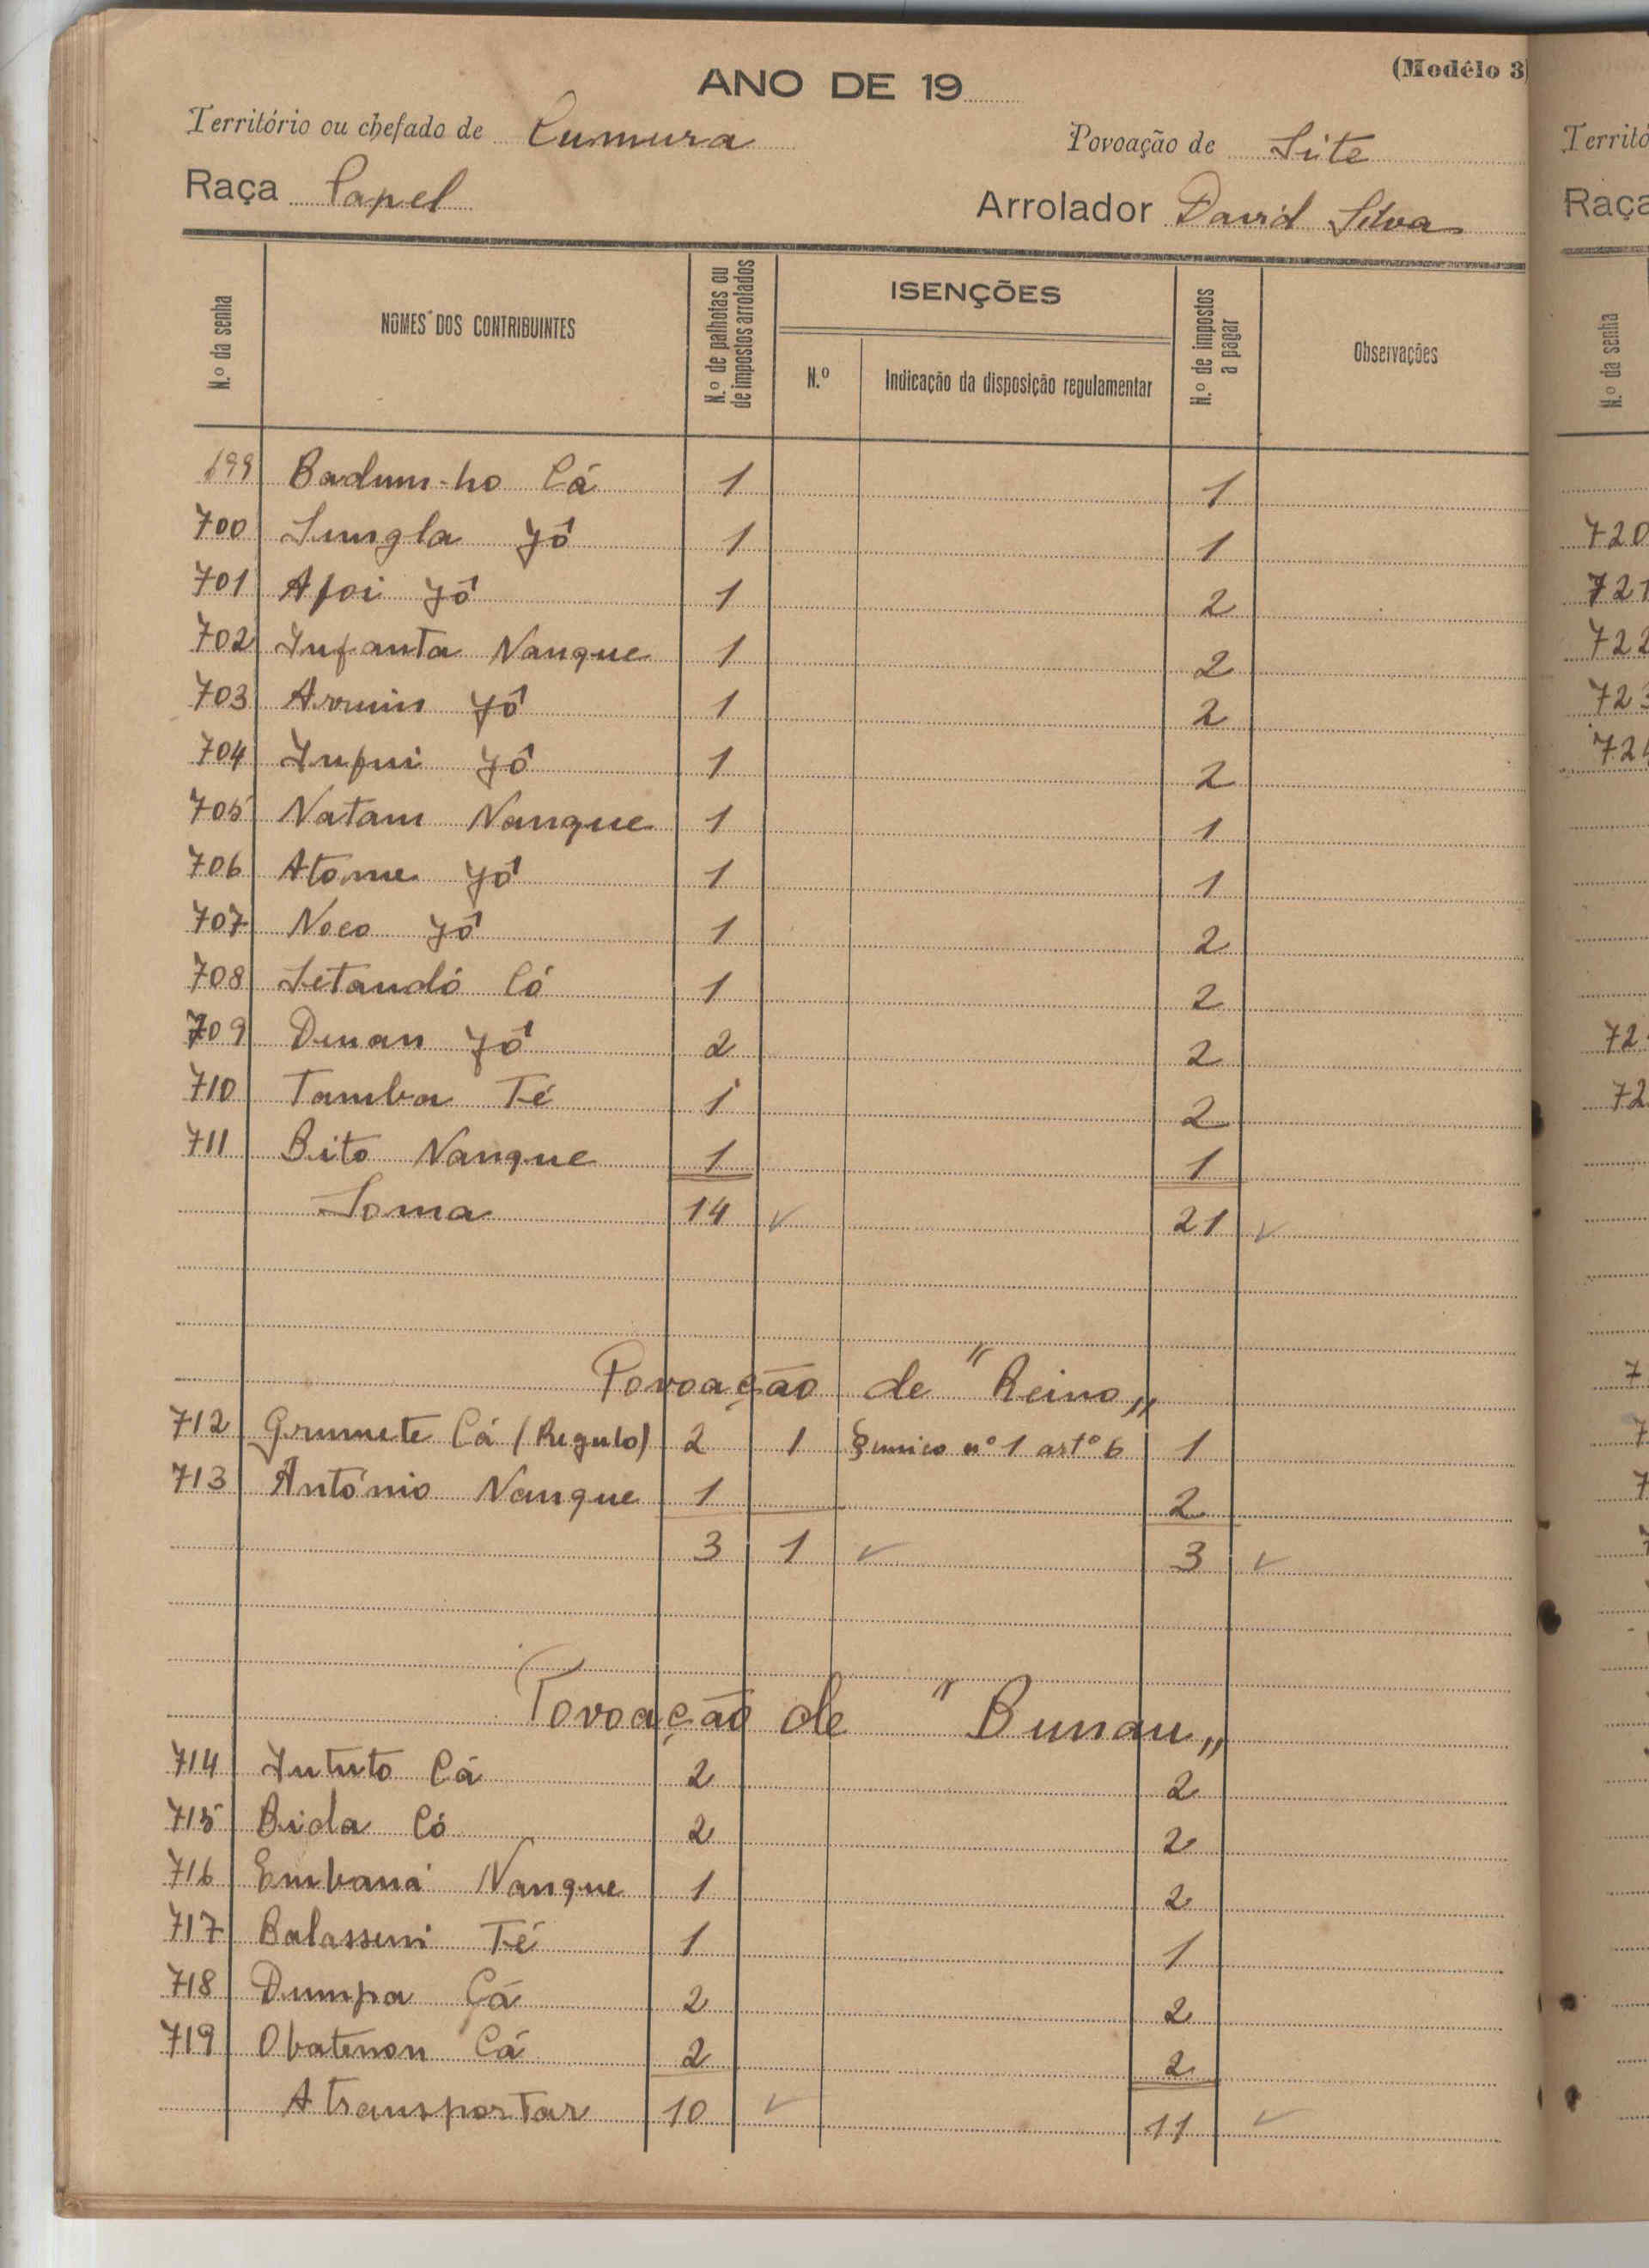 (Modêlo 3)
ANO DE 19
Território ou chefado de Cumura Povoação de Site
Raça Papel Arrolador David Silva
N.º da senha NOMES DOS CONTRIBUINTES N.º de palhotas ou de impostos arrolados ISENÇÕES N.º Indicação da disposição regulamentar N.º de impostos a pagar Observações
699 Badum-ho Cá 1 1
700 Sungla Jô 1 1
701 Apoi Jô 1 2
702 Infanta Nanque 1 2
703 Jô 1 2
704 Jô 1 2
705 Natam Nanque 1 1
706 Atome Jô 1 1
707 Noco Jô 1 2
708 Setandó Có 1 2
709 Dunan Jô 2 2
710 Tamba Té 1 2
711 Bito Nanque 1 1
Soma 14 21
Povoação de "Reino„
712 Grumete Cá (Regulo) 2 1 § unico nº 1 artº 6 1
713 António Nanque 1 2
3 1 3
Povoação de "Bunau„
714 Intuto Cá 2 2
715 Bida Có 2 2
716 Embaná Nanque 1 2
717 Té 1 1
718 Dumpa Cá 2 2
719 Obatenon Cá 2 2
A transportar 10 11
Territó
Raça
N.º da senha
720
721
722
723
724
72
72
7
7
7